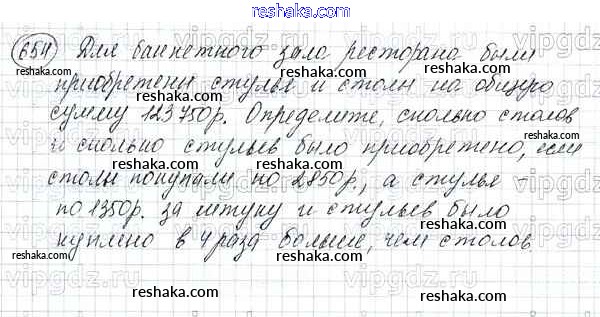 reshaka.com
654 Для банкетного зала ресторана были
приобретены стулья и столы на общую
сумму 123750р. Определите, сколько столов
и сколько стульев было приобретено, если
столы покупали по 2850р., а стулья –
по 1350р. за штуку и стульев было
куплено в 4 раза больше, чем столов.
reshaka.com
reshaka.com
reshaka.com
reshaka.com
reshaka.com
reshaka.com
reshaka.com
reshaka.com
reshaka.com
reshaka.com
vipgdz.ru
vipgdz.ru
vipgdz.ru